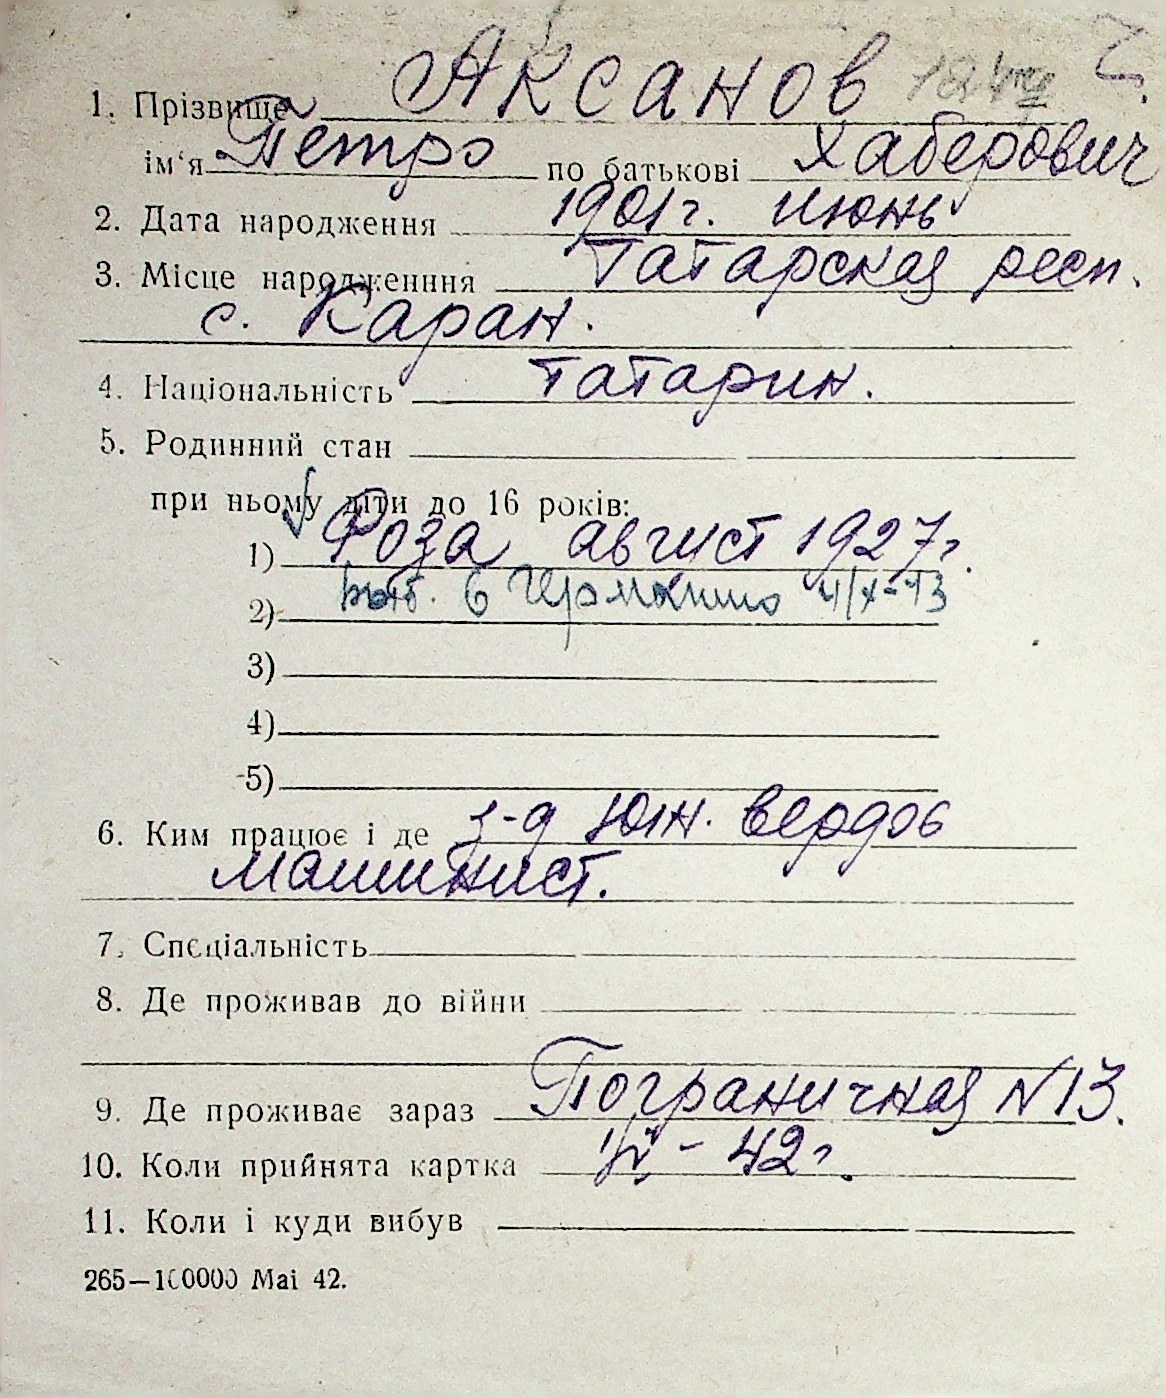 1. Прізвище Аксанов
ім'я Петро по батькові Хаберович
2. Дата народження 1901 г. июнь
3. Місце народженння Татарская респ.
с. Каран.
4. Національність татарин.
5. Родинний стан
при ньому діти до 16 років:
1) Роза август 1927 г.
2) выб. в Германию
3)
4)
5)
6. Ким працює і де з-д Юж. верфь
машинист.
7. Спєціальність
8. Де проживав до війни
9. Де проживає зараз Пограничная N 13.
10. Коли прийнята картка - 42 г.
11. Коли і куди вибув
265—100000 Маі 42.